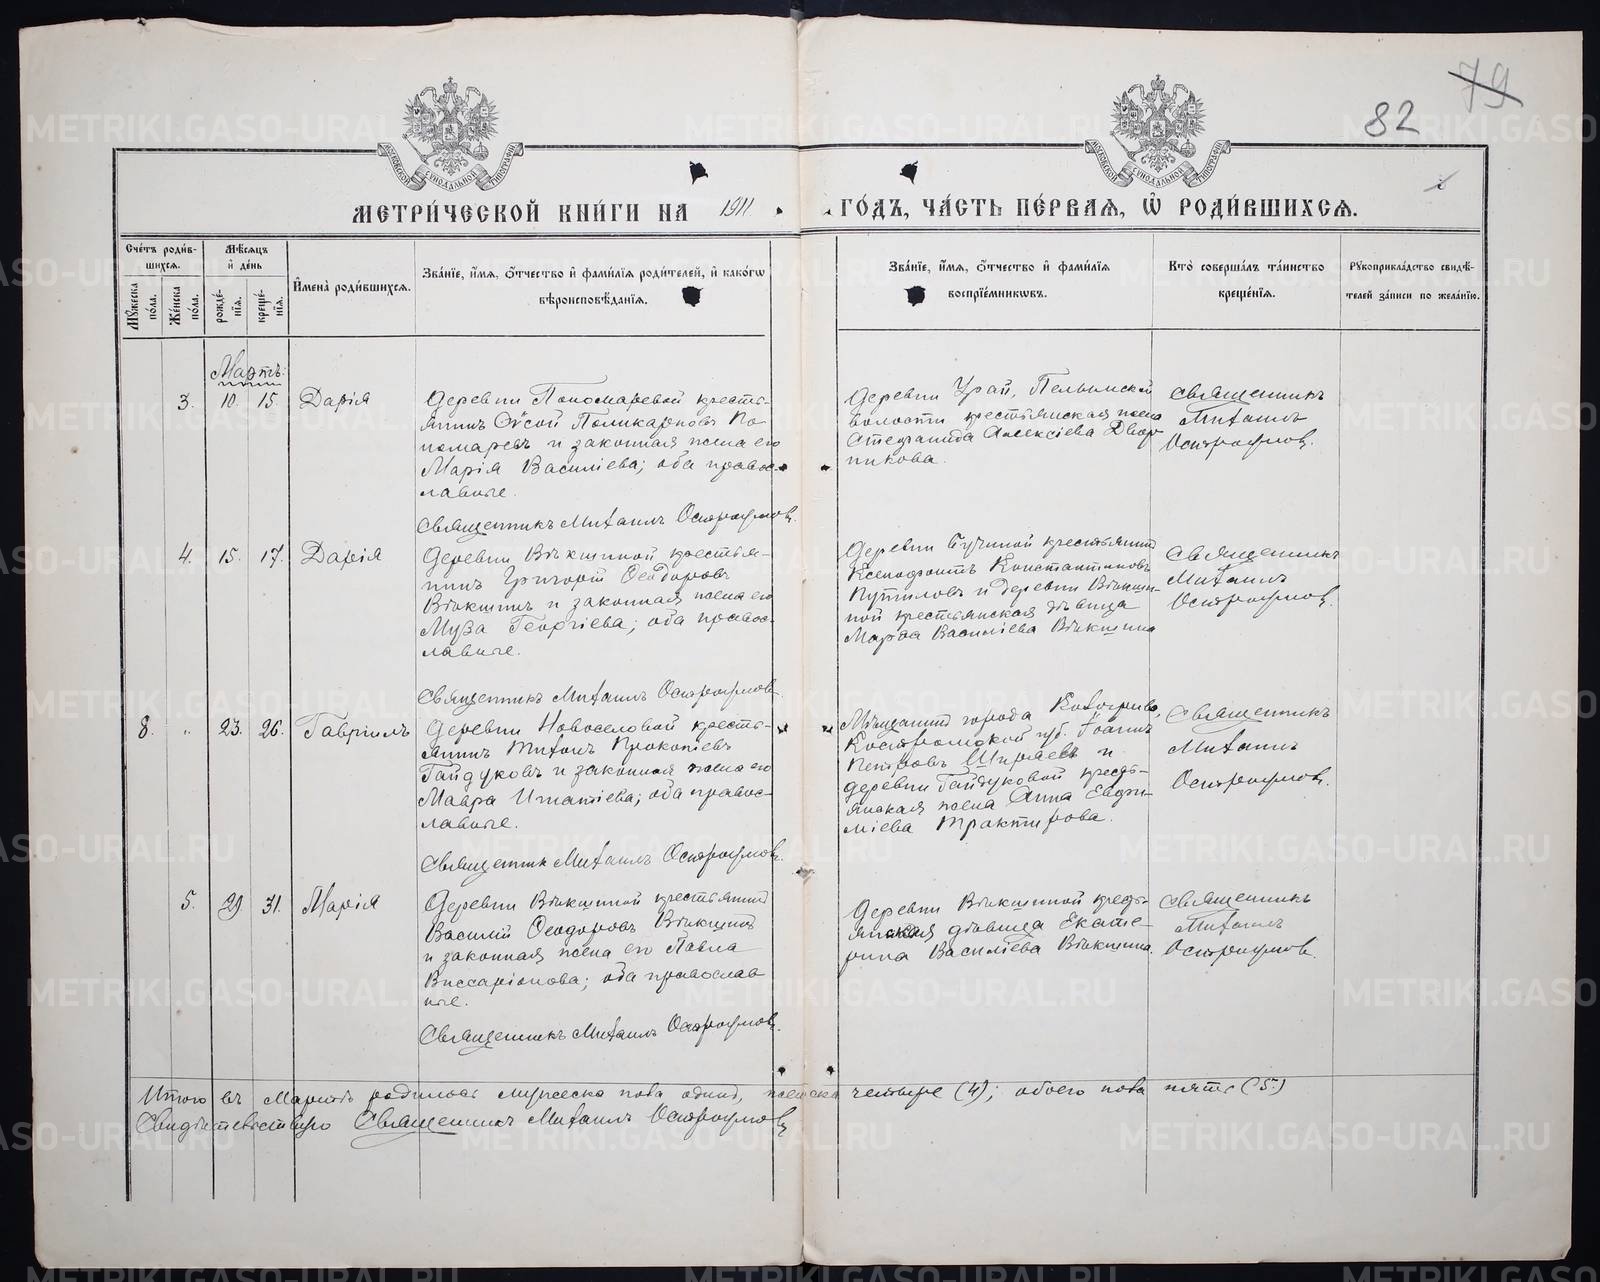 79
82
МЕТРИ́ЧЕСКОЙ КНИ́ГИ НА 1911 ГО́ДЪ, ЧА́СТЬ ПЕ́РВАЯ, Ѡ҆ РОДИ́ВШИХСЯ.
Сче́тъ роди́вшихся.
Му́жеска по́ла.
Же́нска по́ла.
Мѣ́сяцъ и҆ де́нь
рожде́нїя.
креще́нїя.
И҆мена̀ роди́вшихся.
Зва́нїе, и҆́мя, ѻ҆́тчество и҆ фами́лїя роди́телей, и҆ како́гѡ
вѣроисповѣ́данїя.
Зва́нїе, и҆́мя, ѻ҆́тчество и҆ фами́лїя
воспрїе́мникѡвъ.
Кто̀ соверша́лъ та́инство
креще́нїя.
Рукоприкла́дство свидѣ́-
телей за́писи по жела́нїю.
Мартъ:
3. 10. 15. Дарія
Деревни Пономаревой кресть-
янинъ Сѵсой Поликарповъ По-
номаревъ и законная жена его
Марія Василіева; оба правос-
лавные.
Священникъ Михаилъ Остроумовъ.
Деревни Урай, Пелымской
волости крестьянская жена
Стефанида Алексіева Двор-
никова.
Священникъ
Михаилъ
Остроумовъ.
4. 15. 17. Дарія
Деревни Вѣкшиной крестья-
нинъ Григорій Ѳеодоровъ
Вѣкшинъ и законная жена его
Муза Георгіева; оба правос-
лавные.
Священникъ Михаилъ Остроумовъ.
Деревни крестьянинъ
Ксенофонтъ Константиновъ
Путиловъ и деревни Вѣкши-
ной крестьянская дѣвица
Марѳа Василіева Вѣкшина
Священникъ
Михаилъ
Остроумовъ.
8. " 23. 26. Гавріилъ
Деревни Новоселовой кресть-
янинъ Тихонъ Прокопіевъ
Гайдуковъ и законная жена его
Мавра Игнатіева; оба правос-
лавные.
Священникъ Михаилъ Остроумовъ.
Мѣщанинъ города Кологрива,
Костромской губ. Іоаннъ
Петровъ Ширяевъ и
деревни Гайдуковой кресть-
янская жена Анна Евѳи-
міева Трактирова.
Священникъ
Михаилъ
Остроумовъ.
5. 29 31. Марія
Деревни Вѣкшиной крестьянинъ
Василій Ѳеодоровъ Вѣкшинъ
и законная жена его Павла
Виссаріонова; оба православ
ные.
Священникъ Михаилъ Остроумовъ.
Деревни Вѣкшиной кресть-
янская дѣвица Екате-
рина Василіева Вѣкшина.
Священникъ
Михаилъ
Остроумовъ.
Итого въ Мартѣ родилось мужеска пола одинъ, женска четыре (4); обоего пола пять (5)
Свидѣтельствую Священникъ Михаилъ Остроумовъ
METRIKI.GASO-URAL.RU